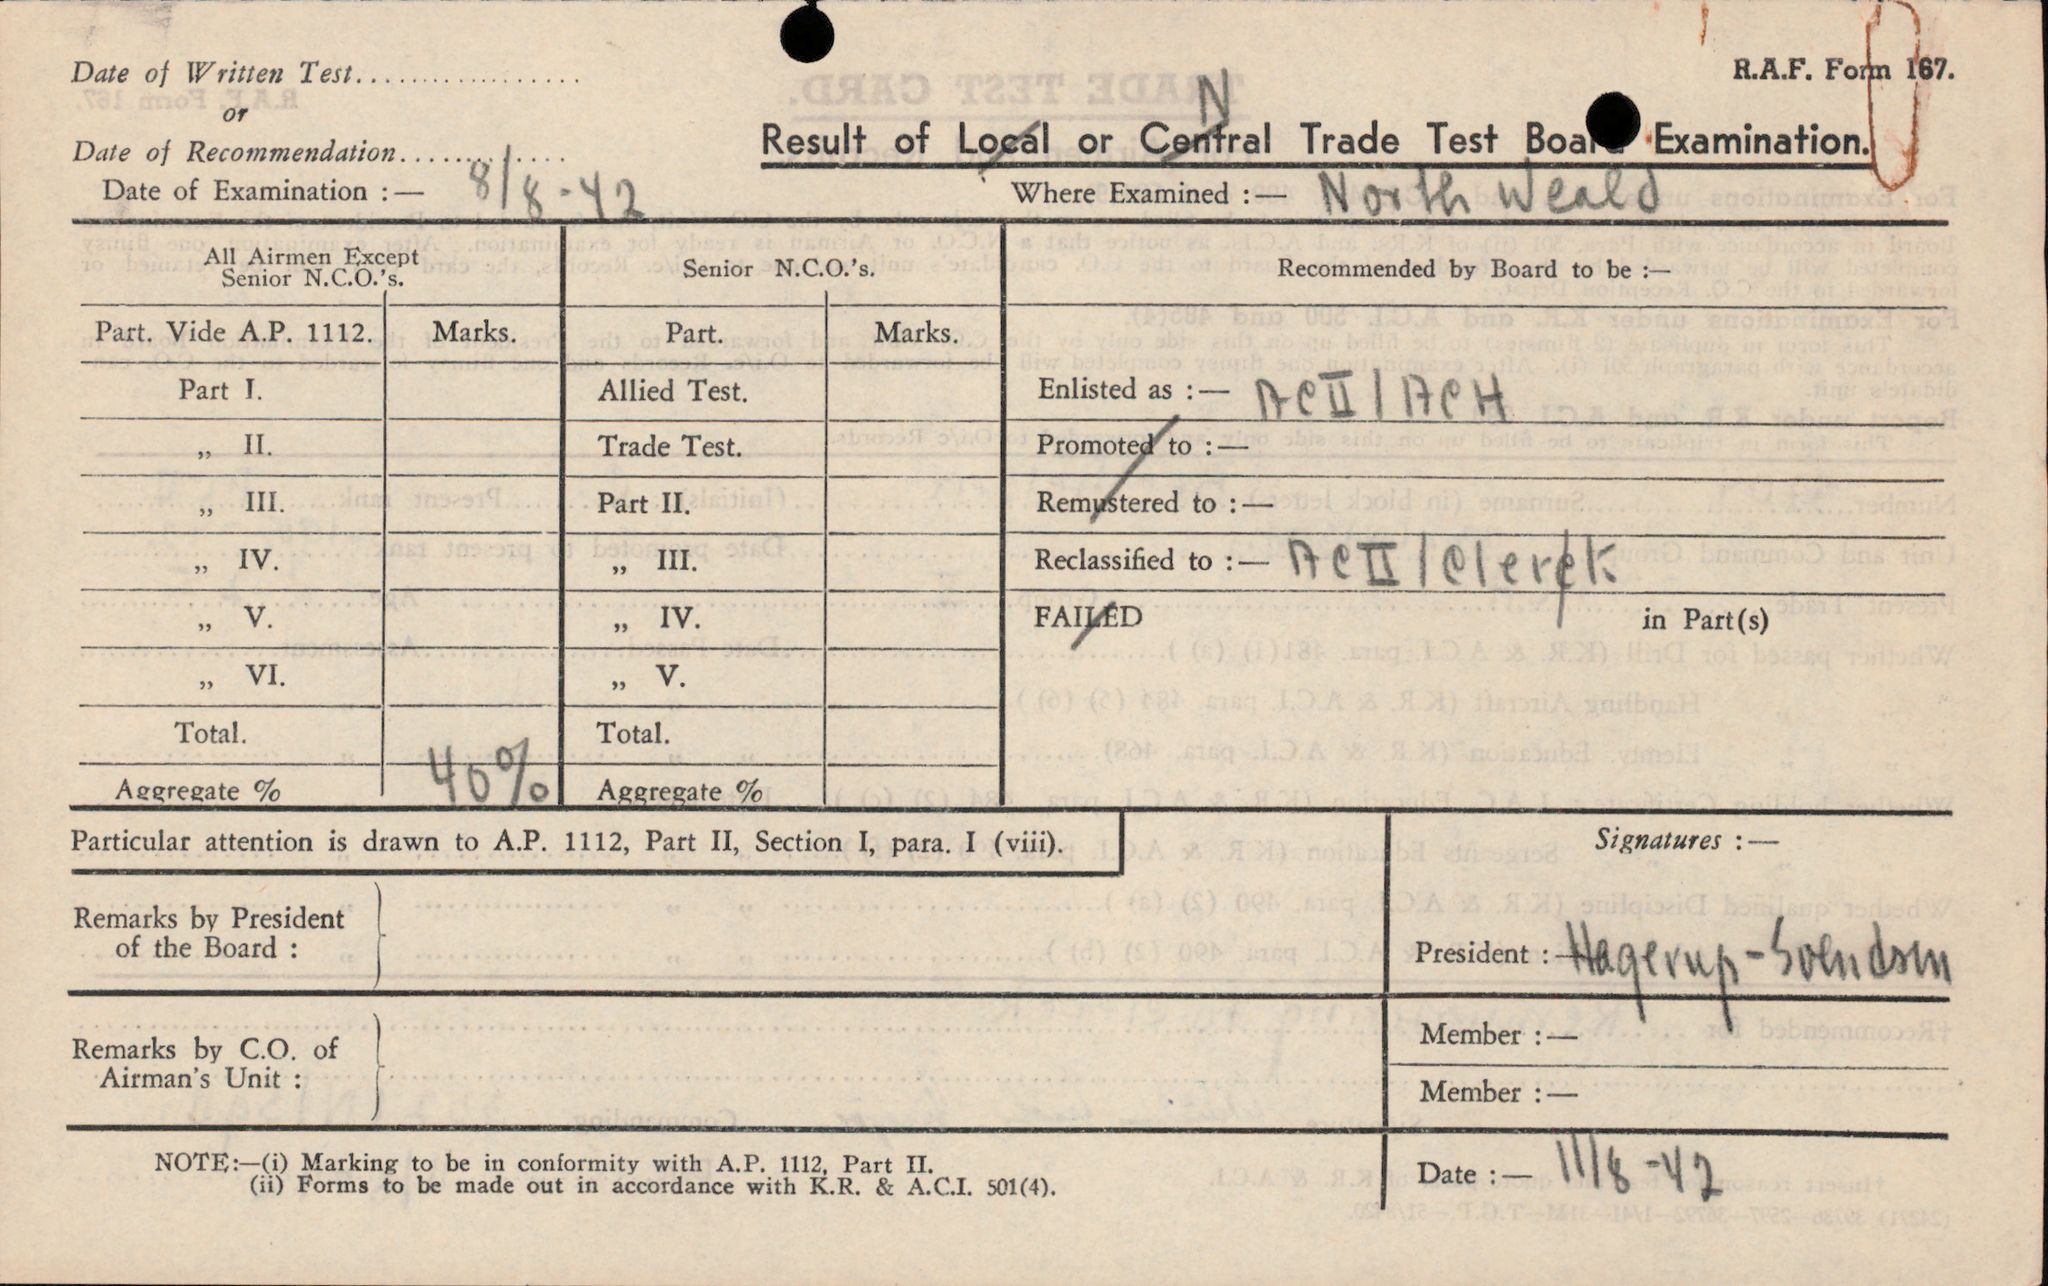 R.A.F. Form 167.
Date of Written Test..................
or
Date of Recommendation.............
N
Result of Local or Central Trade Test Board Examination.
Date of Examination :— 8/8-42
Where Examined :— North Weald
All Airmen Except
Senior N.C.O.'s.
Senior N.C.O.'s.
Recommended by Board to be :—
Part. Vide A.P. 1112. Marks. Part. Marks.
Part I. Allied Test. Enlisted as :— ACII/ACH
„ II. Trade Test. Promoted to :—
„ III. Part II. Remustered to :—
„ IV. „ III. Reclassified to :— ACII/Clerck
„ V. „ IV. FAILED in Part(s)
„ VI. „ V.
Total. Total.
Aggregate % 40% Aggregate %
Particular attention is drawn to A.P. 1112, Part II, Section I, para. I (viii).
Signatures :—
Remarks by President
of the Board :
President :— Hagerup-Svendsen
Remarks by C.O. of
Airman's Unit :
Member :—
Member :—
NOTE:—(i) Marking to be in conformity with A.P. 1112, Part II.
(ii) Forms to be made out in accordance with K.R. & A.C.I. 501(4).
Date :— 11/8-42